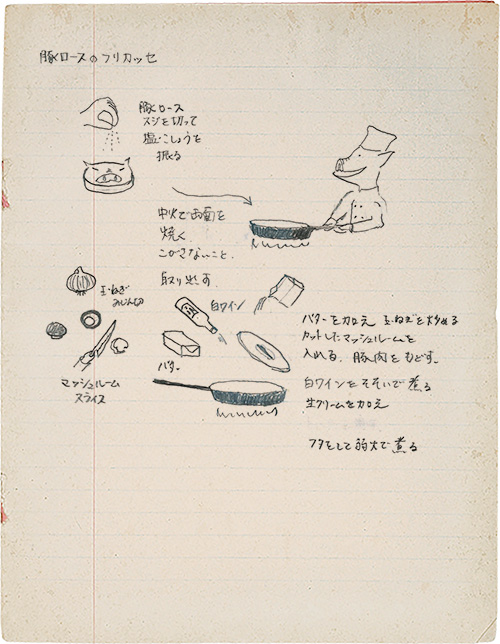 豚ロースのフリカッセ
豚ロース
スジを切って
塩こしょうを
振る
中火で両面を
焼く
こがさないこと。
取り出す
玉ねぎ
みじん切
白ワイン
バター
マッシュルーム
スライス
バターを加え 玉ねぎを炒める
カットしたマッシュルームを
入れる。豚肉をもどす。
白ワインをそそいで煮る
生クリームを加え
フタをして弱火で煮る